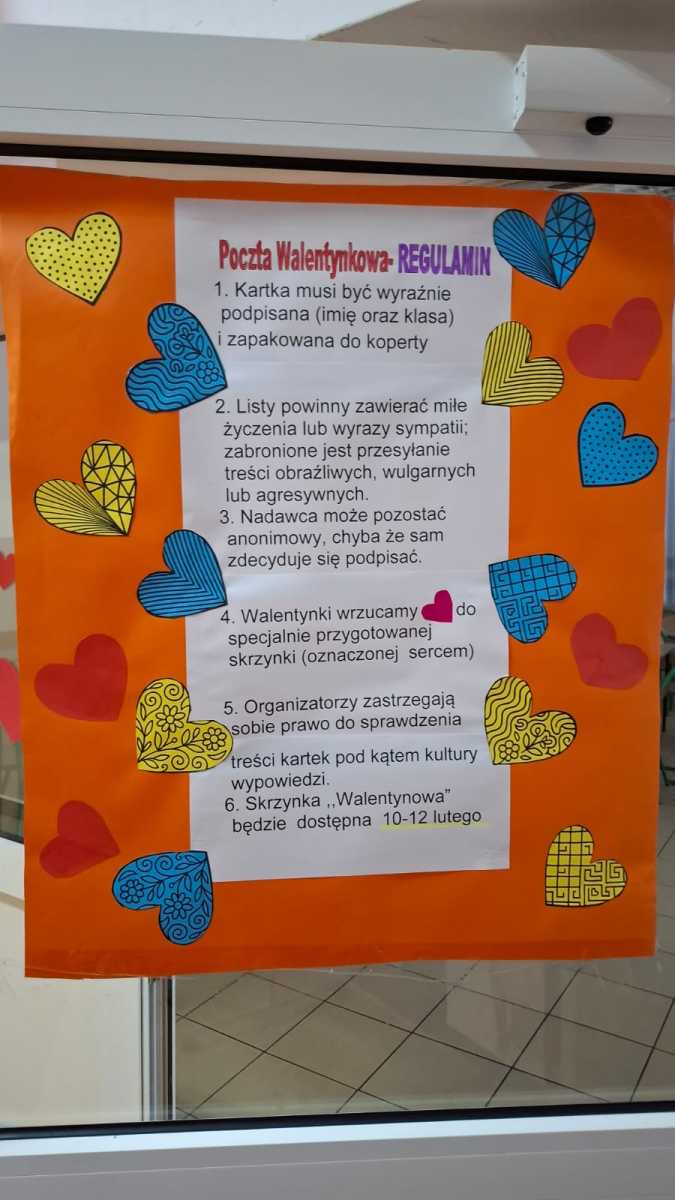 Poczta Walentynkowa- REGULAMIN
1. Kartka musi być wyraźnie
podpisana (imię oraz klasa)
i zapakowana do koperty
2. Listy powinny zawierać miłe
życzenia lub wyrazy sympatii;
zabronione jest przesyłanie
treści obraźliwych, wulgarnych
lub agresywnych.
3. Nadawca może pozostać
anonimowy, chyba że sam
zdecyduje się podpisać.
4. Walentynki wrzucamy do
specjalnie przygotowanej
skrzynki (oznaczonej sercem)
5. Organizatorzy zastrzegają
sobie prawo do sprawdzenia
treści kartek pod kątem kultury
wypowiedzi.
6. Skrzynka ,,Walentynowa”
będzie dostępna 10-12 lutego